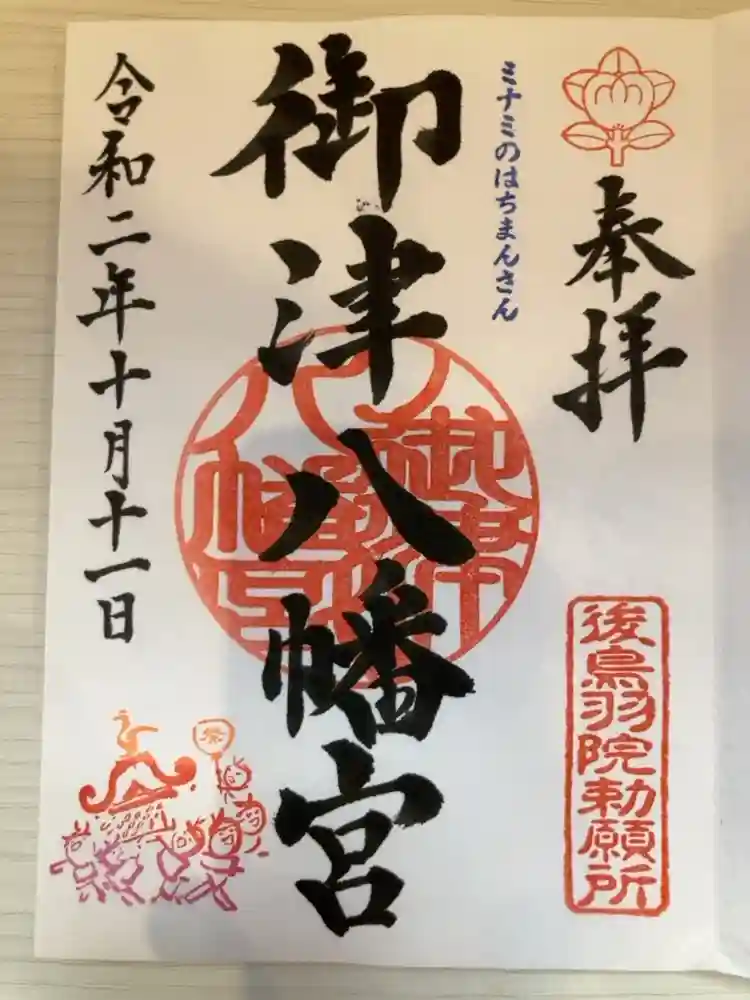 奉拝
後鳥羽院勅願所
ミナミのはちまんさん
御津八幡宮
令和二年十月十一日
祭